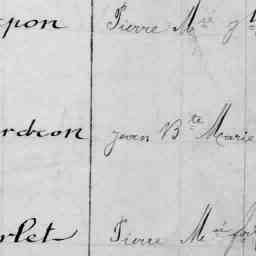 pon Pierre M
rdeon jean Bte Marie
rlet Pierre M